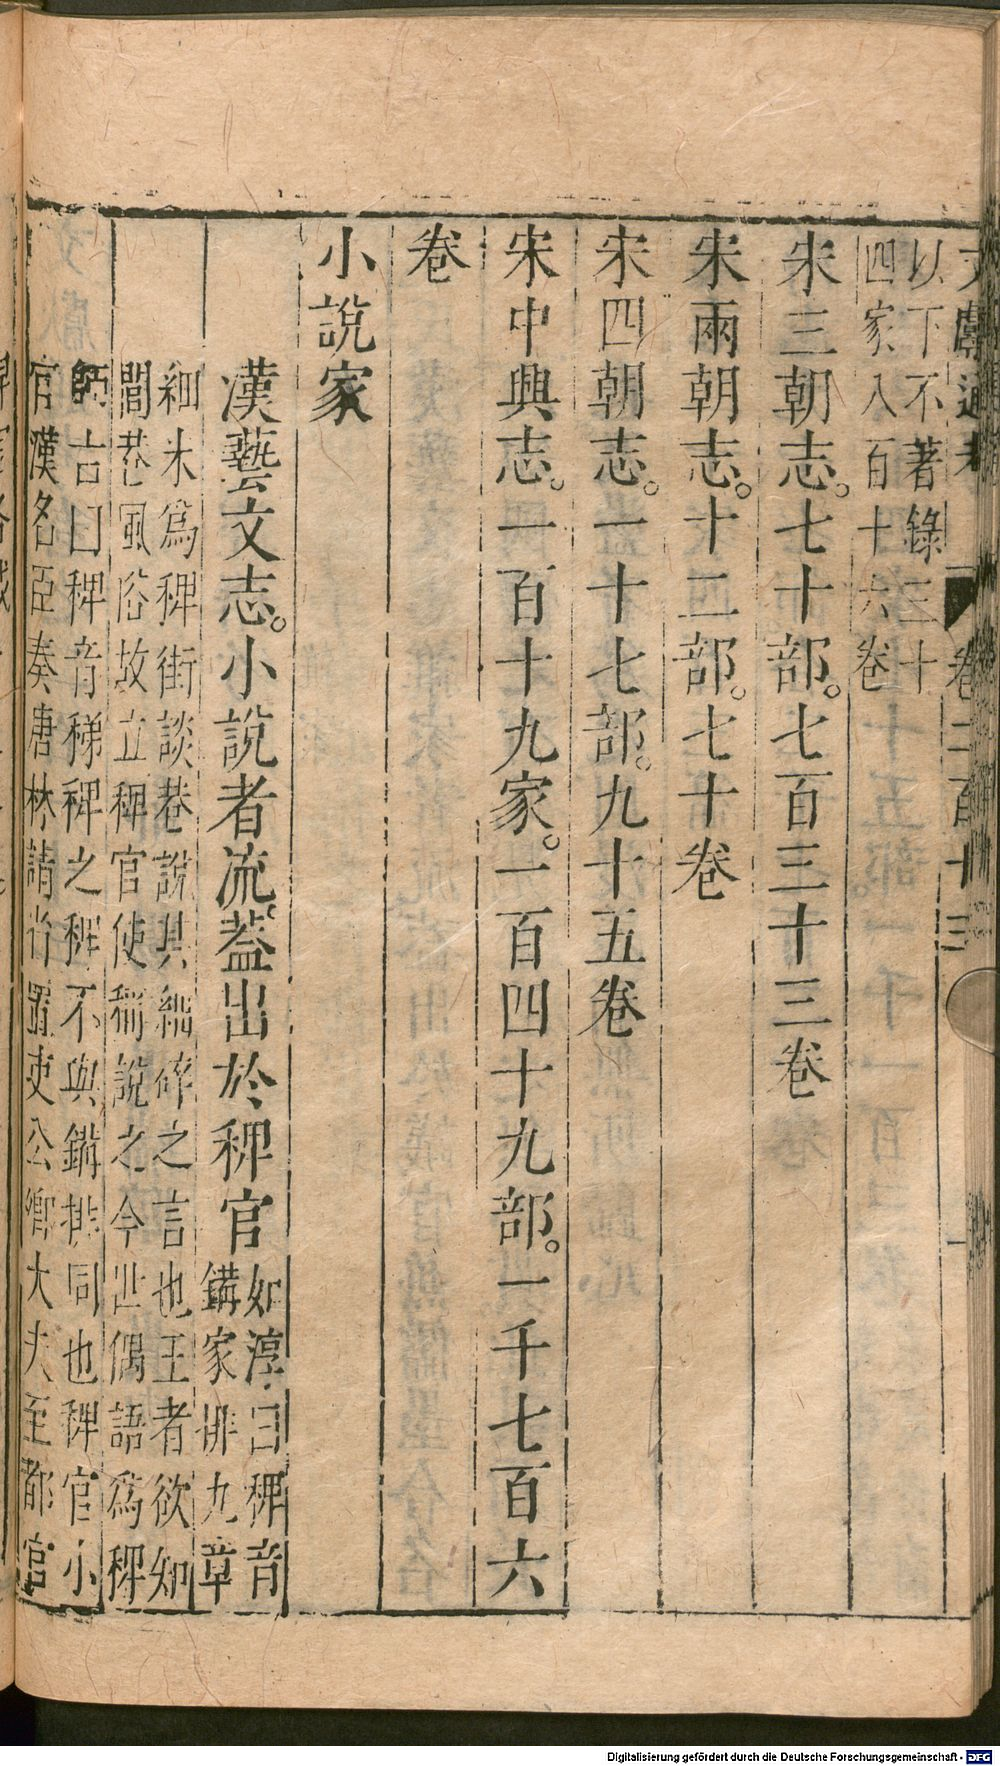 文獻通考 卷二百十三 一
以下不著錄三十
四家八百十六卷
宋三朝志。七十部。七百三十三卷
宋兩朝志。十二部。七十卷
宋四朝志。一十七部。九十五卷
宋中興志。一百十九家。一百四十九部。一千七百六
卷
小說家
漢藝文志。小說者流蓋出於稗官
如淳曰稗音
鍡家排九章
細米為稗街談巷說其細碎之言也王者欲知
閭巷風俗故立稗官使稱說之今世偶語為稗
師古曰稗音稊稗之稗不與鍡排同也稗官小
官漢名臣奏唐林請省置吏公卿大夫至都官
Digitalisierung gefördert durch die Deutsche Forschungsgemeinschaft - DFG